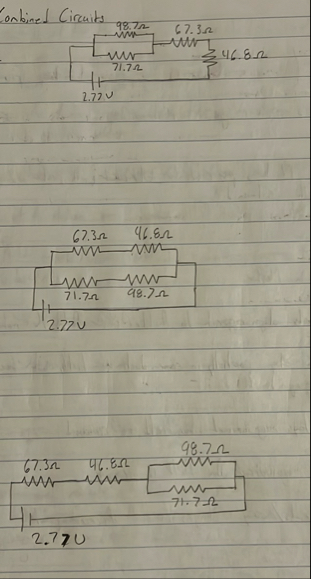 Combined Circuits
98.7Ω
67.3Ω
71.7Ω
46.8Ω
2.77V
67.3Ω 46.8Ω
71.7Ω 98.7Ω
2.77V
67.3Ω 46.8Ω
98.7Ω
71.7Ω
2.77V